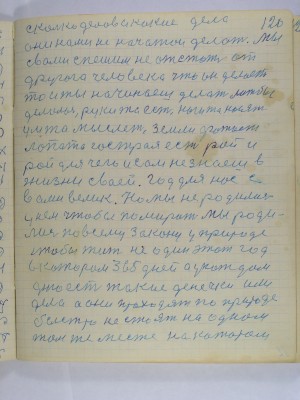 сколко делов какие дела 120
они нами не начатои делат. Мы
свами спешем не отстат от
другога человека что он делает
то и ты начинаеш делат
делаеш, руки то ест, ноги то носят
ума мыслет, Земли
лопата гострая ест рой и
рой для чего и сам не знаем в
жизни своей. Год для нас с
вами велик. Но мы не родилис
унем чтобы помират мы роди-
лис по всему Закону у природе
чтобы жит не один этот год
вкатором 365 дней а укаждом
дню ест такие денечки или
дела а они праходят по природе
быстро не стоят на одном
том же месте на катором